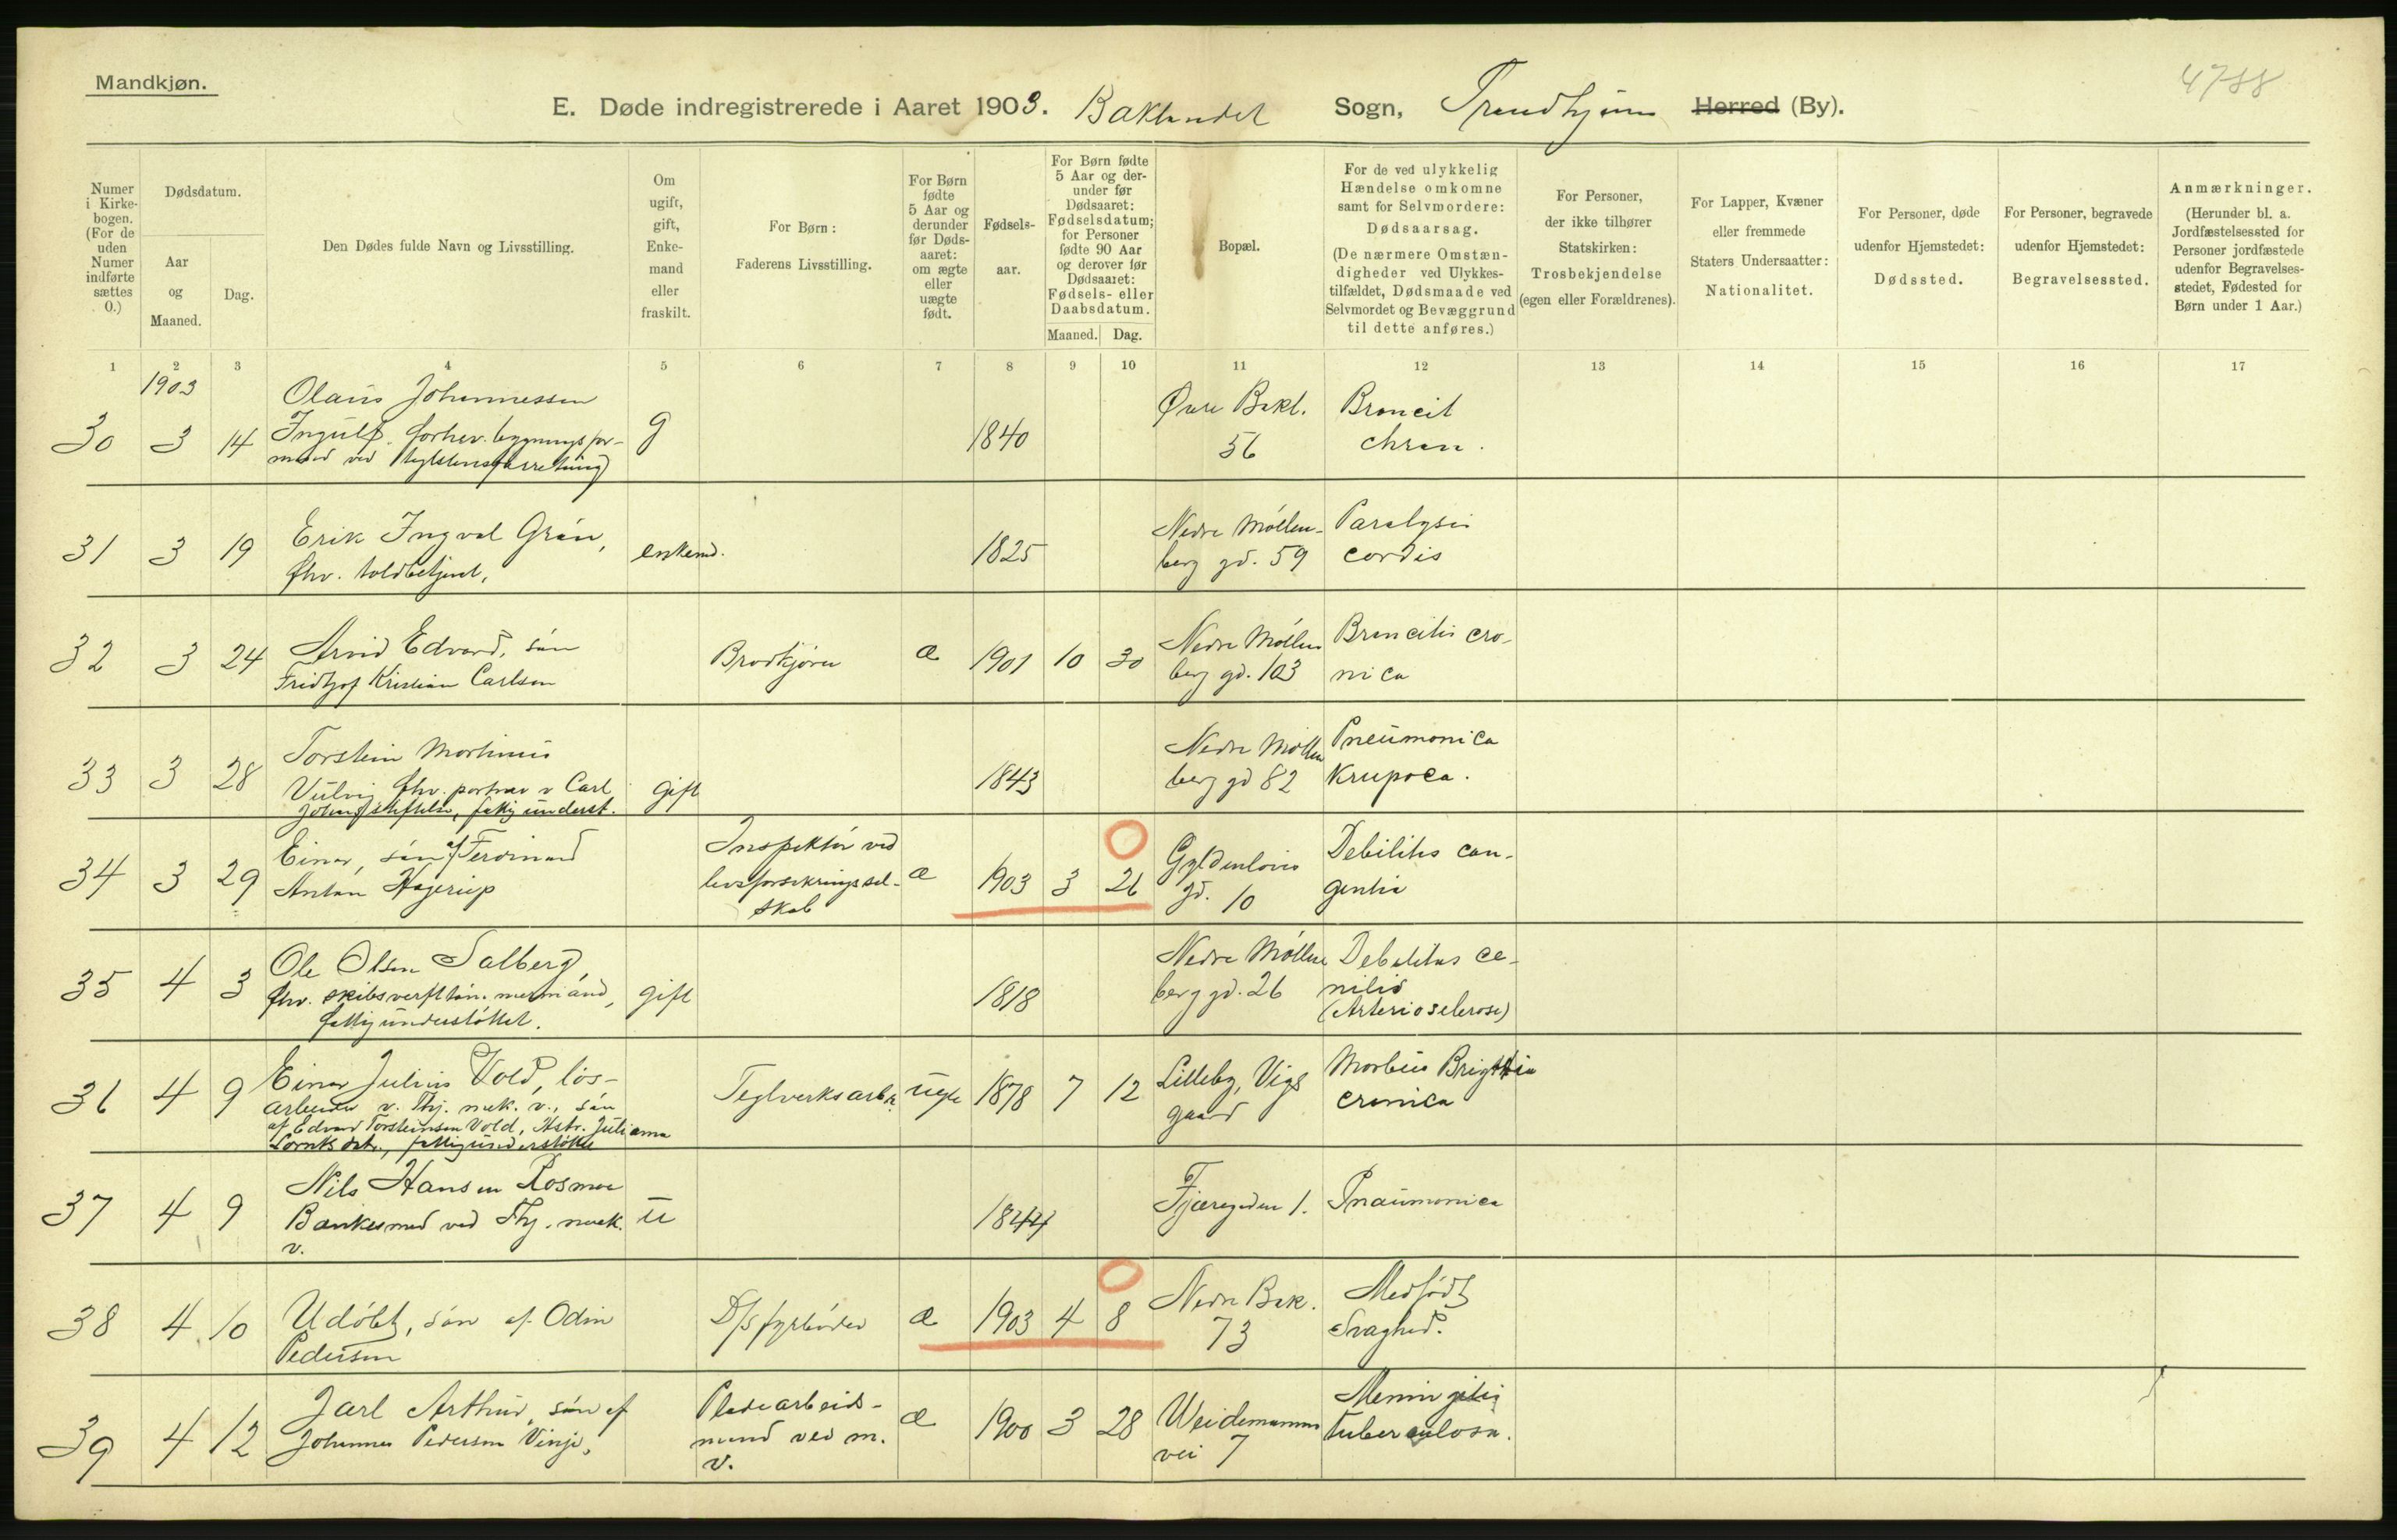 Mandkjøn.
4788
E. Døde indregistrerede i Aaret 1903. Baklandet Sogn, Trondhjem Herred (By).
Numer i Kirkebogen. (For de uden Numer indførte sættes 0.)
Dødsdatum.
Aar og Maaned.
Dag.
Den Dødes fulde Navn og Livsstilling.
Om ugift, gift, Enkemand eller fraskilt.
For Børn: Faderens Livsstilling.
For Børn fødte 5 Aar og derunder før Dødsaaret: om ægte eller uægte født.
Fødselsaar.
For Børn fødte 5 Aar og derunder før Dødsaaret: Fødselsdatum; for Personer fødte 90 Aar og derover før Dødsaaret: Fødsels- eller Daabsdatum.
Maaned. Dag.
Bopæl.
For de ved ulykkelig Hændelse omkomne samt for Selvmordere: Dødsaarsag. (De nærmere Omstændigheder ved Ulykkestilfældet, Dødsmaade ved Selvmordet og Bevæggrund til dette anføres.)
For Personer, der ikke tilhører Statskirken: Trosbekjendelse (egen eller Forældrenes).
For Lapper, Kvæner eller fremmede Staters Undersaatter: Nationalitet.
For Personer, døde udenfor Hjemstedet: Dødssted.
For Personer, begravede udenfor Hjemstedet: Begravelsessted.
Anmærkninger. (Herunder bl. a. Jordfæstelsessted for Personer jordfæstede udenfor Begravelsesstedet, Fødested for Børn under 1 Aar.)
1 2 3 4 5 6 7 8 9 10 11 12 13 14 15 16 17
1903
30 3 14 Olaus Johannessen
Ingulf. forhv. bygningsfor-
mand ved
g 1840 Øvre Bakl.
56
Broncit
chron.
31 3 19 Erik Ingval Grön,
fhv. toldbetjent,
enkemd. 1825 Nedre Möllen-
berg gd. 59
Paralysis
cordis
32 3 24 Arvid Edvard, sön
Fridtjof Kristian Carlsen
Brodkjører æ 1901 10 30 Nedre Möllen
berg gd. 103
Broncitis cro-
nica
33 3 28 Torstein Martinus
Vulvig fhv. portner v Carl
Johans stiftelse, fattig underst.
gift 1843 Nedre Möllen
berg gd 82
Pneumonica
Krupoca.
34 3 29 Einar, sön af Ferdinand
Anton Hagerup
Inspektör ved
livsforsikringssel-
skab
æ 1903 3 26 Gyldenløves
gd. 10
Debilitas con-
gentia
35 4 3 Ole Olsen Salberg,
fhv. skibsverfttömmermand,
fattigunderstöttet.
gift 1818 Nedre Möllen
berg gd. 26
Debilitas ce-
nilis
(Arteriosclerose)
36 4 9 Einar Julius Vold, lös-
arbeider v. Thj. mek. v., sön
af Edvard Torsteinsen Vold, Juliana
Lorntsdatr., fattigunderstötte
Teglverksarb. uegte 1878 7 12 Lilleby, Vigs
gaard
Morbus Brightia
cronica
37 4 9 Nils Hansen Rosmoe
Bankesmed ved Thj. mek.
v.
u 1844 Fjæregaden 1. Pnaumonica
38 4 10 Udöbt, sön af Odin
Pedersen
D/s fyrböder æ 1903 4 8 Nedre Bak.
73
Medfödt
Svaghed.
39 4 12 Jarl Arthur, sön af
Johannes Pedersen Vinje,
Pladearbeids-
mand ved m.
v.
æ 1900 3 28 Weidemanns
vei 7
Meningitis
tuberculosa.